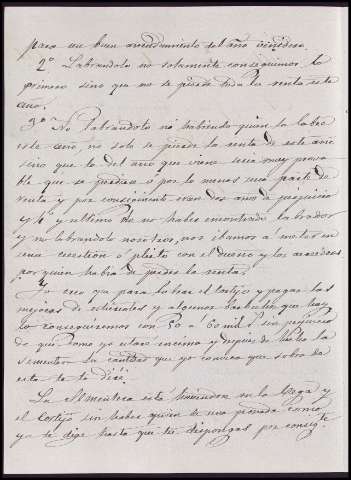 para un buen arrendamiento del año venidero.
2º Labrandolo no solamente conseguimos lo
primero sino que no se pierda toda la renta este
año.
3º No labrandolo ni habiendo quien lo labre
este año, no solo se pierde la renta de este año
sino que la del año que viene seria muy proba
ble que se perdiera o por lo menos una parte de
renta y por consiguiente eran dos años de perjuicio
y 4º y ultimo de no haber encontrado labrador
y no labrandolo nosotros, nos ibamos a meter en
una cuestion o pleito con el dueño y los acreedores
por quien habia de perder la renta.
Yo creo que para labrar el cortijo y pagar las
mejoras de and algunos que hay
lo conseguiremos con 50 a 60 mil sin perjuicio
de que como yo estare encima y despues de hecha la
sementera la cantidad que yo conozca que sobra de
esta te lo diré.
La Sementera está en la Vega y
el Cortijo sin haber quien de una peonada como
ya te dige hasta que tu dispongas por consigte